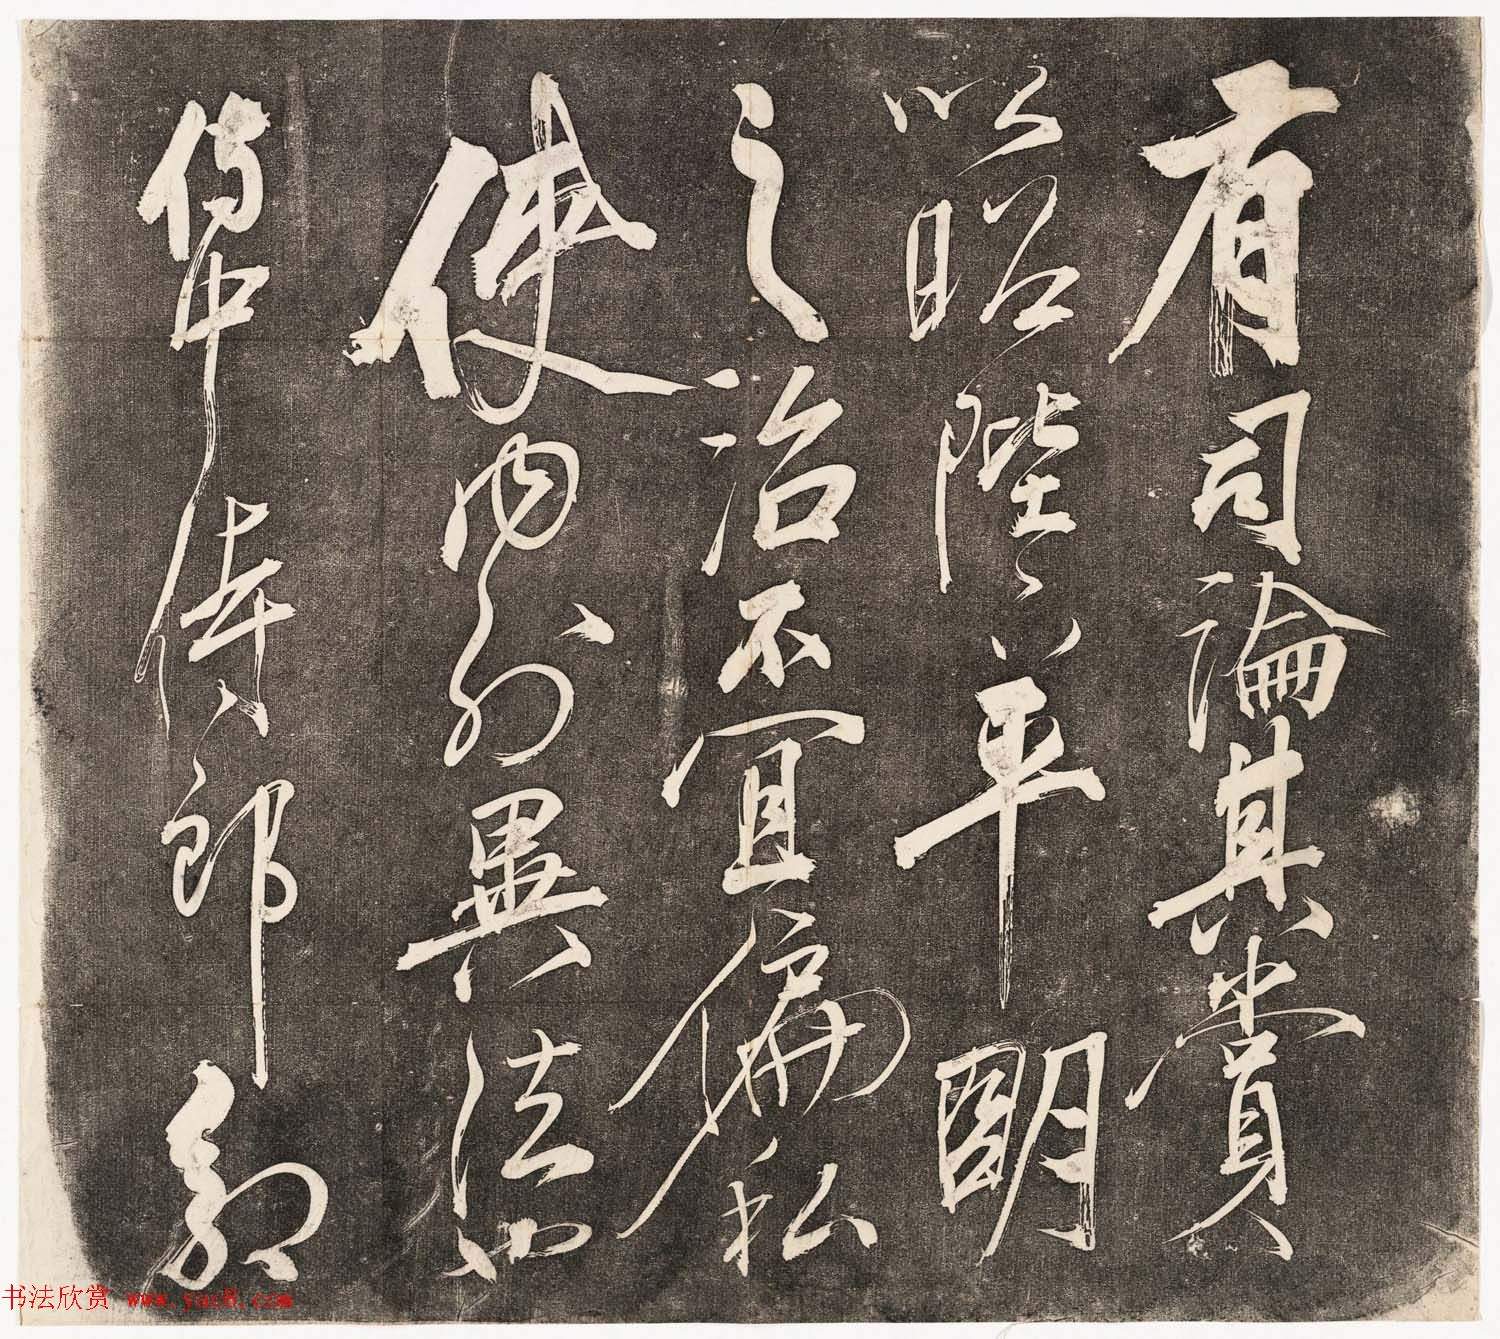 有司論其賞
以昭陛下平明
之治不宜偏私
使内外異法也
侍中侍郎郭
书法欣赏 www.yac8.com